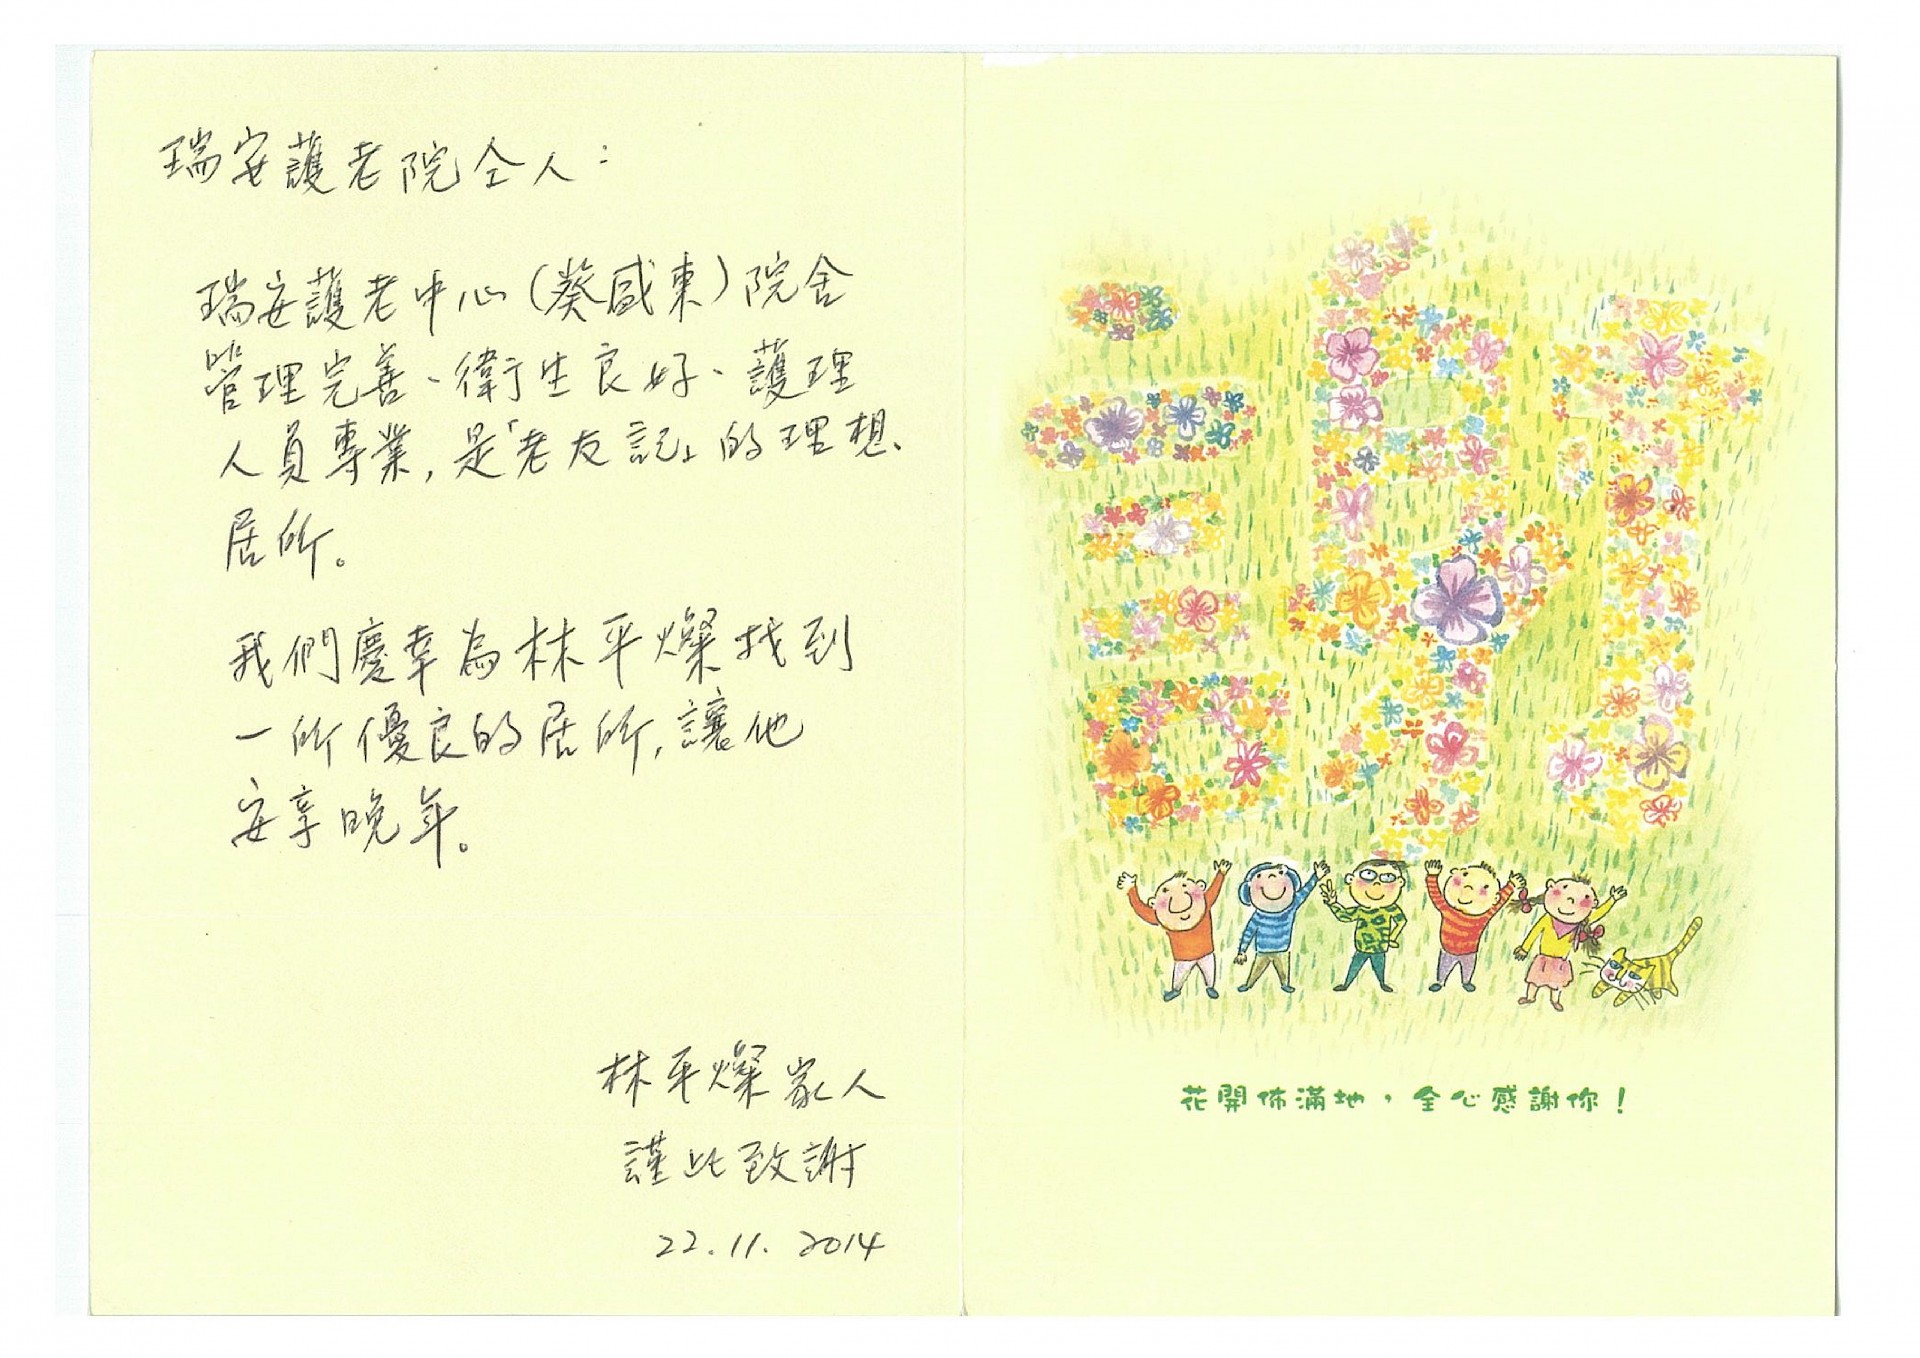 瑞安護老院仝人：
瑞安護老中心(葵盛東)院舍
管理完善、衛生良好、護理
人員專業，是「老友記」的理想
居所。
我們慶幸為林平燦找到
一所優良的居所，讓他
安享晚年。
林平燦家人
謹此致謝
22.11.2014
謝
花開佈滿地，全心感謝你！